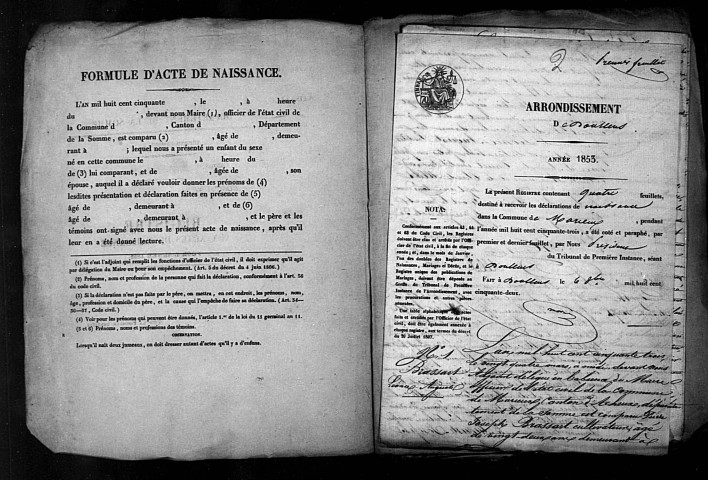 FORMULE D'ACTE DE NAISSANCE.
L'AN mil huit cent cinquante , le , à heure
du , devant nous Maire (1), officier de l'état civil de
la Commune d , Canton d , Département
de la Somme, est comparu (2) , âgé de , demeu-
rant à ; lequel nous a présenté un enfant du sexe
né en cette commune le , à heure du
de (3) lui comparant, et de , âgée de , son
épouse, auquel il a déclaré vouloir donner les prénoms de (4)
lesdites présentation et déclaration faites en présence de (5)
âgé de , demeurant à , et de (6)
âgé de , demeurant à , et le père et les
témoins ont signé avec nous le présent acte de naissance, après qu'il
leur en a été donné lecture.
(1) Si c'est l'adjoint qui remplit les fonctions d'officier de l'état civil, il doit exprimer qu'il agit
par délégation du Maire ou pour son empêchement. (Art. 5 du décret du 4 juin 1806.)
(2) Prénoms, nom et profession de la personne qui fait la déclaration, conformément à l'art. 56
du code civil.
(3) Si la déclaration n'est pas faite par le père, on mettra, en cet endroit, les prénoms, nom,
âge, profession et domicile du père, et la cause qui l'empêche de faire sa déclaration. (Art. 34—
56—57, Code civil.)
(4) Voir pour les prénoms qui peuvent être donnés, l'article 1.er de la loi du 11 germinal an 11.
(5 et 6) Prénoms, noms et professions des témoins.
OBSERVATION.
Lorsqu'il naît deux jumeaux, on doit dresser autant d'actes qu'il y a d'enfans.
2 premier feuillet
ARRONDISSEMENT
D Doullens
ANNÉE 1853.
Le présent REGISTRE contenant quatre feuillets,
destiné à recevoir les déclarations de naissance
dans la Commune de Marieux, pendant
l'année mil huit cent cinquante-trois, a été coté et paraphé, par
premier et dernier feuillet, par Nous
du Tribunal de Première Instance, séant
à Doullens
FAIT à Doullens le 6 mil huit cent
cinquante-deux.
NOTA.
Conformément aux articles 43, 44
et 63 du Code Civil, les Registres
doivent être clos et arrêtés par l'Offi-
cier de l'état civil, à la fin de chaque
année; et, dans le mois de Janvier,
l'un des doubles des Registres de
Naissances, Mariages et Décès, et le
Registre unique des publications de
Mariages, doivent être déposés au
Greffe du Tribunal de Première
Instance de l'Arrondissement, avec
les procurations et autres pièces
annexées.
Une table alphabétique des actes
faite et arrêtée par l'Officier de l'état
civil, doit être également annexée à
chaque registre, aux termes du décret
du 20 Juillet 1807.
N° 1
Brassart
L'an mil huit cent cinquante trois
le vingt quatre mars, à midi devant nous
Maire
officier de l'état civil de la commune
de Marieux, canton d'Acheux, dépar
tement de la Somme est comparu Pierre
Joseph Brassart cultivateur, âgé
de vingt deux ans demeurant à